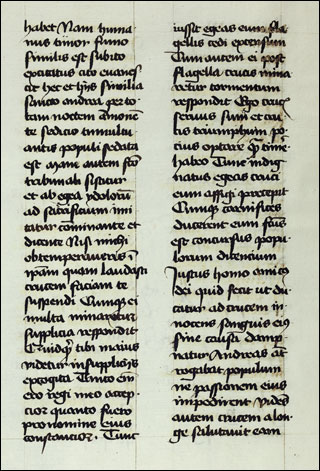 habet Nam huma
nus timor fumo
similis est subito
excitatus cito euanes
cit hec et hijs similia
sancto andrea per to
tam noctem monen
te sedicio tumultu
antis populi sedata
est mane autem
tribunali sistitur
et ab egea ydolorum
ad sacrificium imi
tatur cominante et
dicente Nisi michi
obtemperaueris
ipsam quam laudasti
crucem faciam te
suspendi Cumque ei
multa minaretur
supplicia respondit
quidquid tibi maius
videtur in suppliciis
excogita Tanto em
eo regi meo accep
cior quanto fuero
pro nomine eius
constancior Tunc
iussit egeas eum fla
gellis cedi extensum
Cum autem ei post
flagella crucis mina
retur tormentum
respondit Ego cruc
seruus sum et cru
cis triumphum po
cius optare time
habeo Tunc indig
natus egeas cruci
eum affigi precepit
Cumque carnifices
ducerent eum
est concursus popu
lorum dicencium
Justus homo amic
dei quid fecit ut du
catur ad crucem in
nocens sanguis eius
sine causa damp
natur Andreas at
rogabat populum
ne passionem eius
impedirent Videns
autem crucem a lon
ge salutauit eam